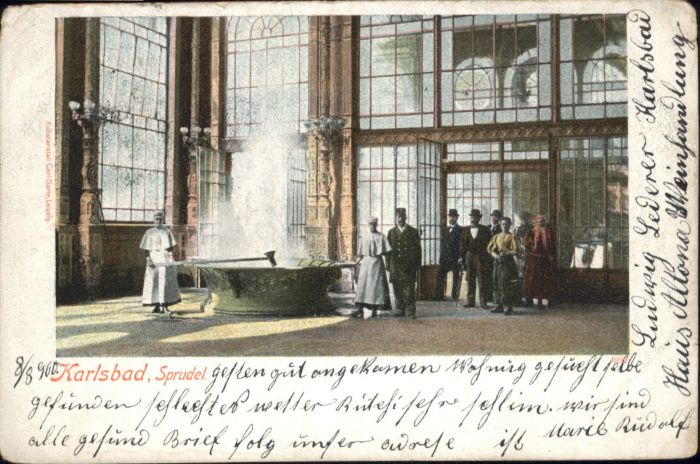 8/8 900.
Karlsbad, Sprudel. gesten gut angekamen Wohnug gesucht selbe
gefunden schlechtes wetter Rutschi sehr schlim. wir sind
alle gesund Brief folg unser adrese ist Marie Rudolf
Ludwig Lederer Karlsbad
Haus Altona Weinhandlung
Kunstanstalt Carl Garte, Leipzig.